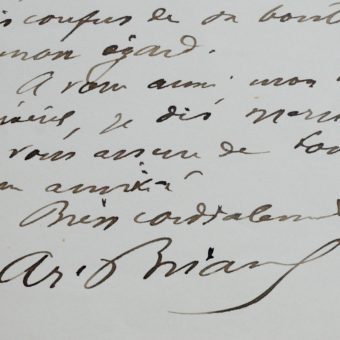 confus de sa bonté
mon égard.
A vous aussi mon
je dis merci
vous assure de tou
amitié
Bien cordialement
Ar. Briand